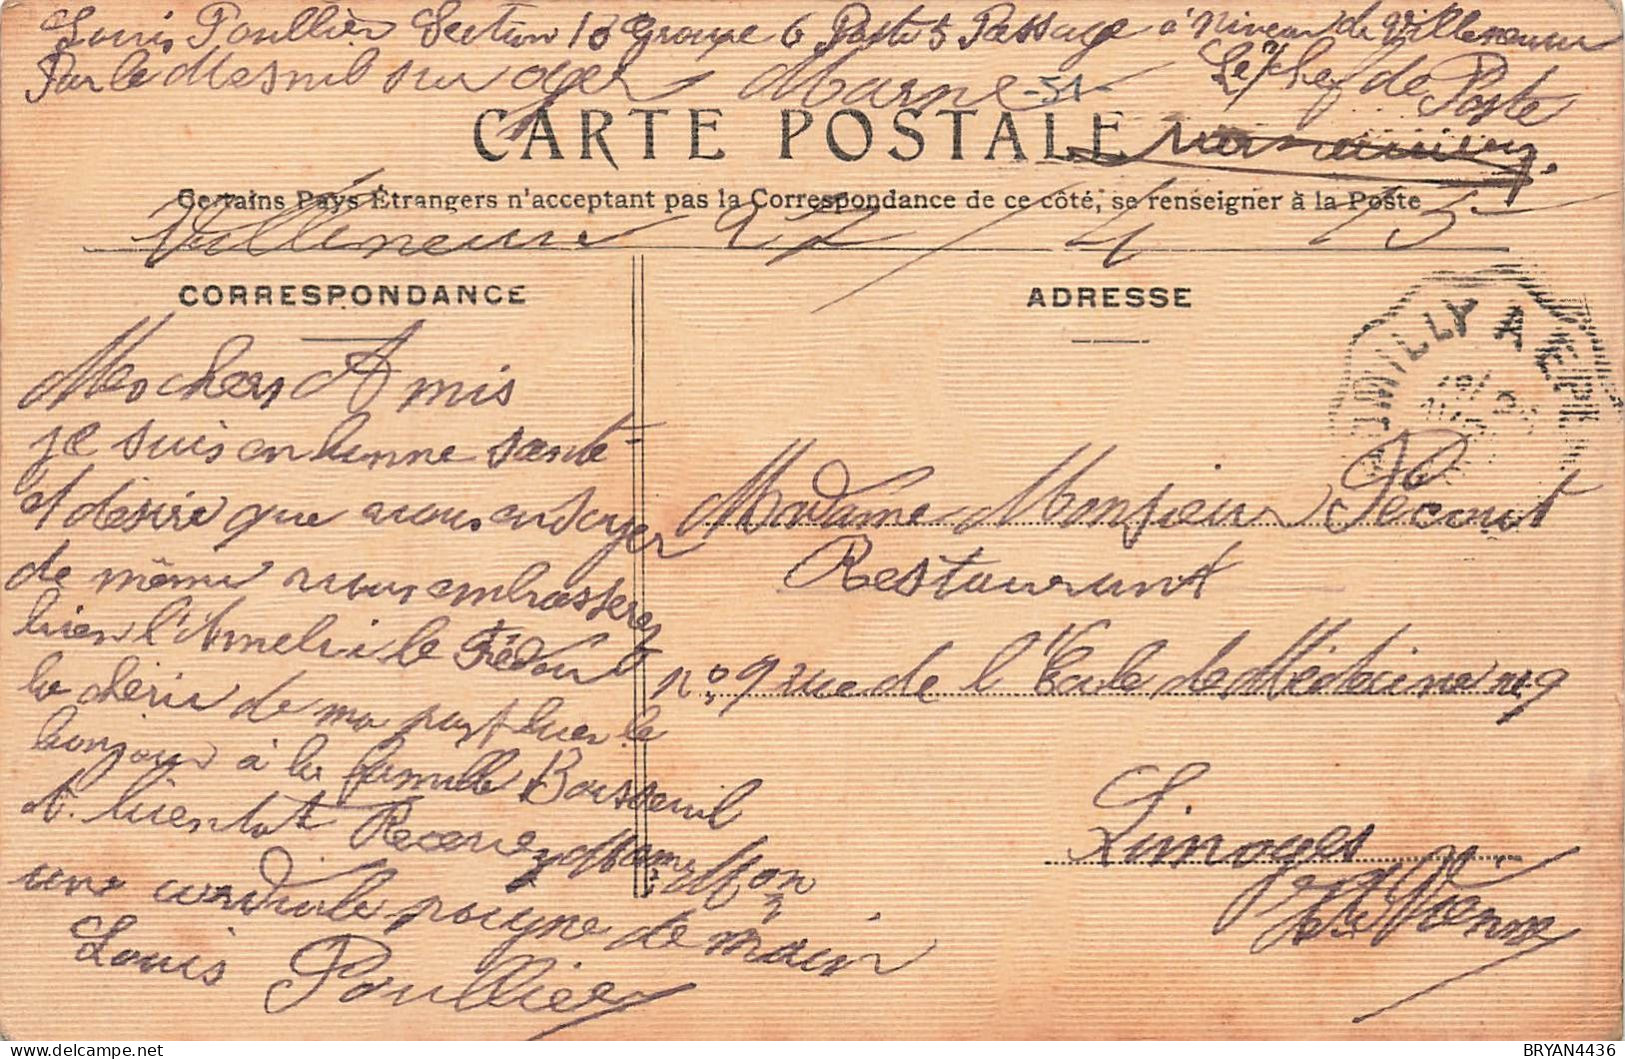 Louis Poullier Section 18 Groupe 6 Poste 5 Passage à niveau de Villeneuve
Par le Mesnil sur Oger Marne -51- Le Chef de Poste
CARTE POSTALE
Certains Pays Étrangers n'acceptant pas la Correspondance de ce côté, se renseigner à la Poste
Villeneuve 27/4 15
CORRESPONDANCE
Mes chers Amis
je suis en bonne santé
et désire que vous en soyer
de même vous embrasserez
bien l'Ameli le Frédon
la chérie de ma part bien le
bonjour à la famille Boisseuil
A bientot Recevez Mame Mon
une cordiale poigne de main
Louis Poullier
ADRESSE
ROMILLY A EPER
Madame Monsieur Pécout
Restaurant
no 9 rue de l'Ecole de Médecine no 9
Limoges
Hte Vienne
BRYAN4436